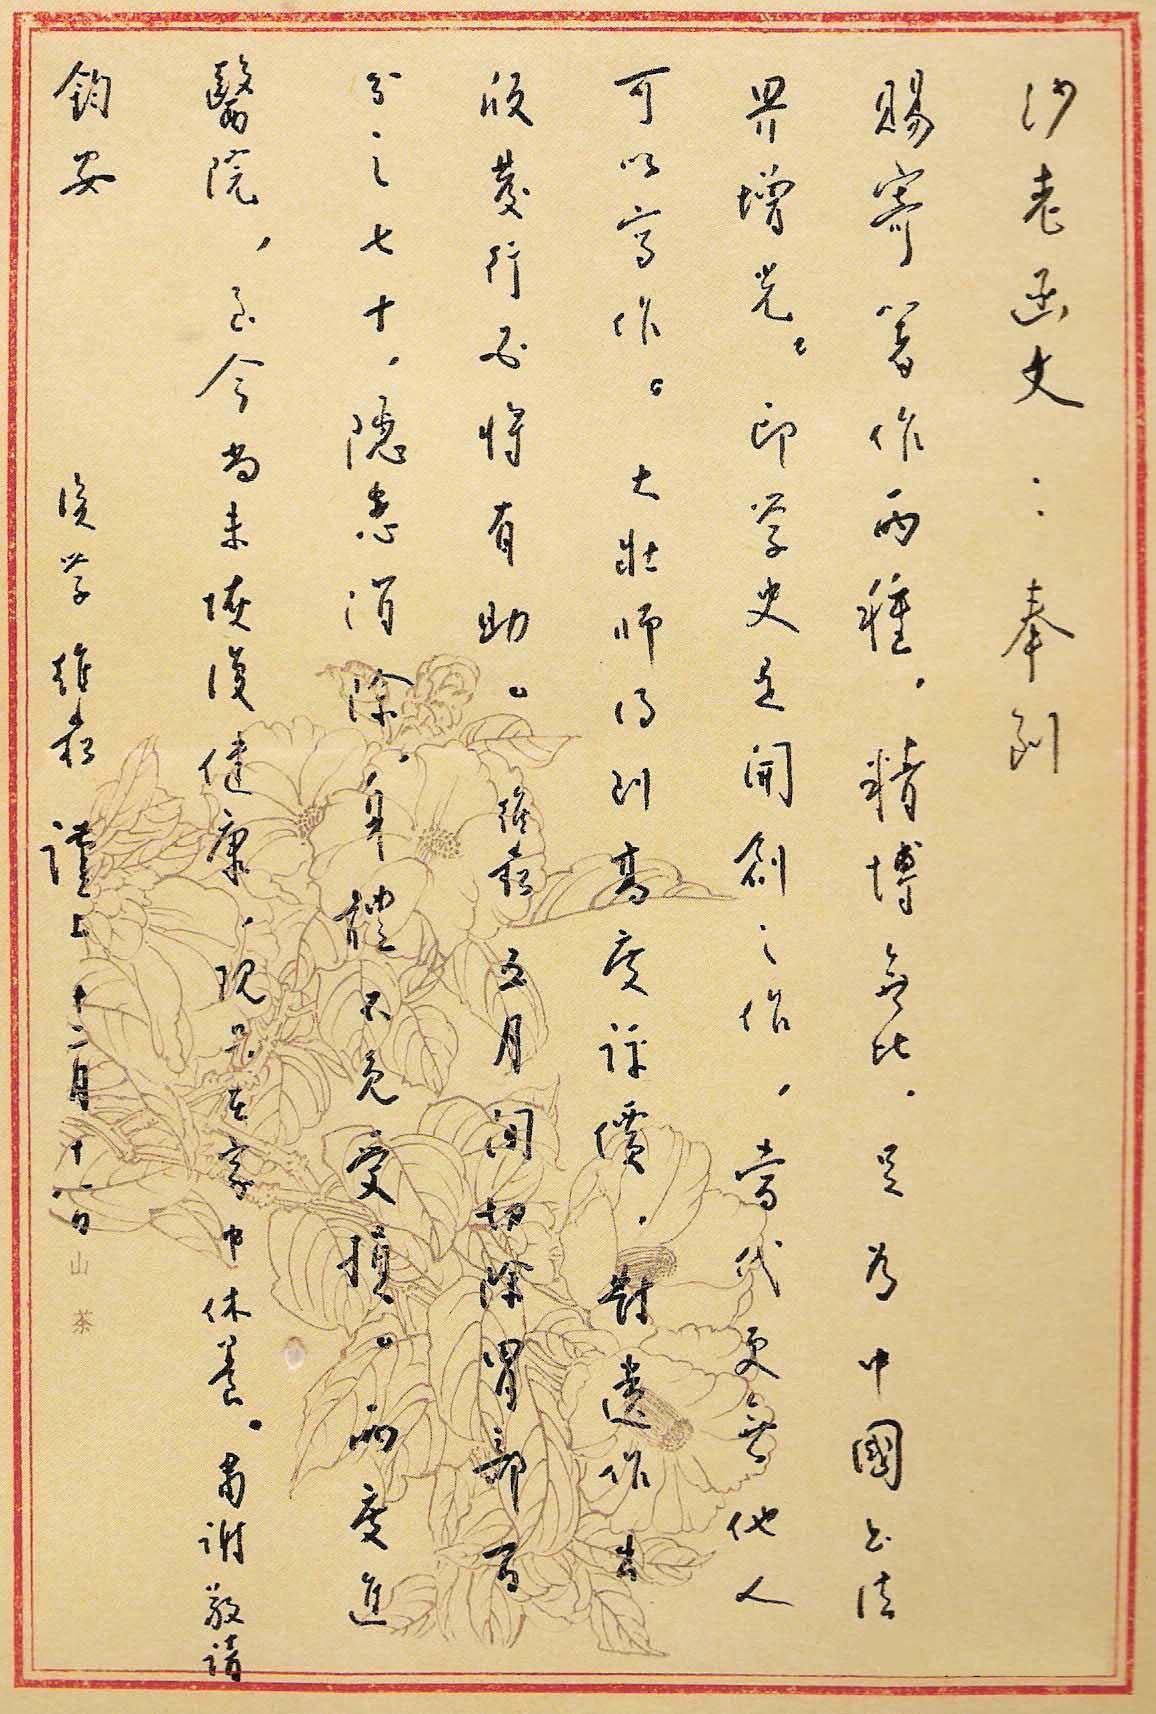 沙老函丈：奉到
賜寄著作兩種，精博無比，足為中國书法
界增光。印学史是開創之作，當代更無他人
可以寫作。大壯師得到高度評價，對遺作出
版發行必將有助。維崧五月间切除胃部百
分之七十，隱患消除，身體不免受損。兩度進
醫院，至今尚未恢復健康，現是在家中休養。肅謝敬請
鈞安
後学維崧謹上十二月十一日
山茶